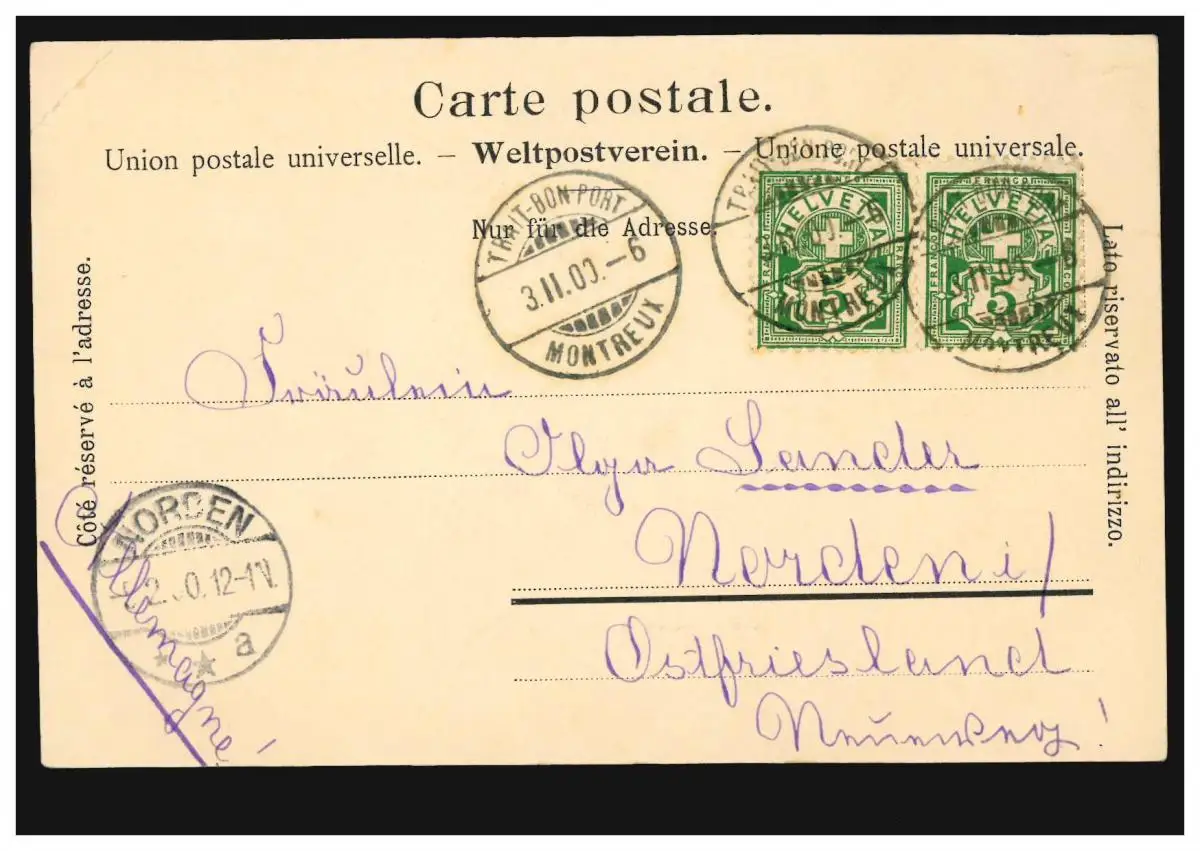 Carte postale.
Union postale universelle. – Weltpostverein. – Unione postale universale.
Nur für die Adresse.
Côté réservé à l'adresse.
Lato riservato all' indirizzo.
TRAIT-BON-PORT
3.II.00.–6
MONTREUX
FRANCO
HELVETIA
5
MONTREUX
FRANCO
HELVETIA
5
MONTREUX
Fräulein
Olga Sander
Norden i/
Ostfriesland
Neuerweg!
Allemagne!
NORDEN
12-1N.
a